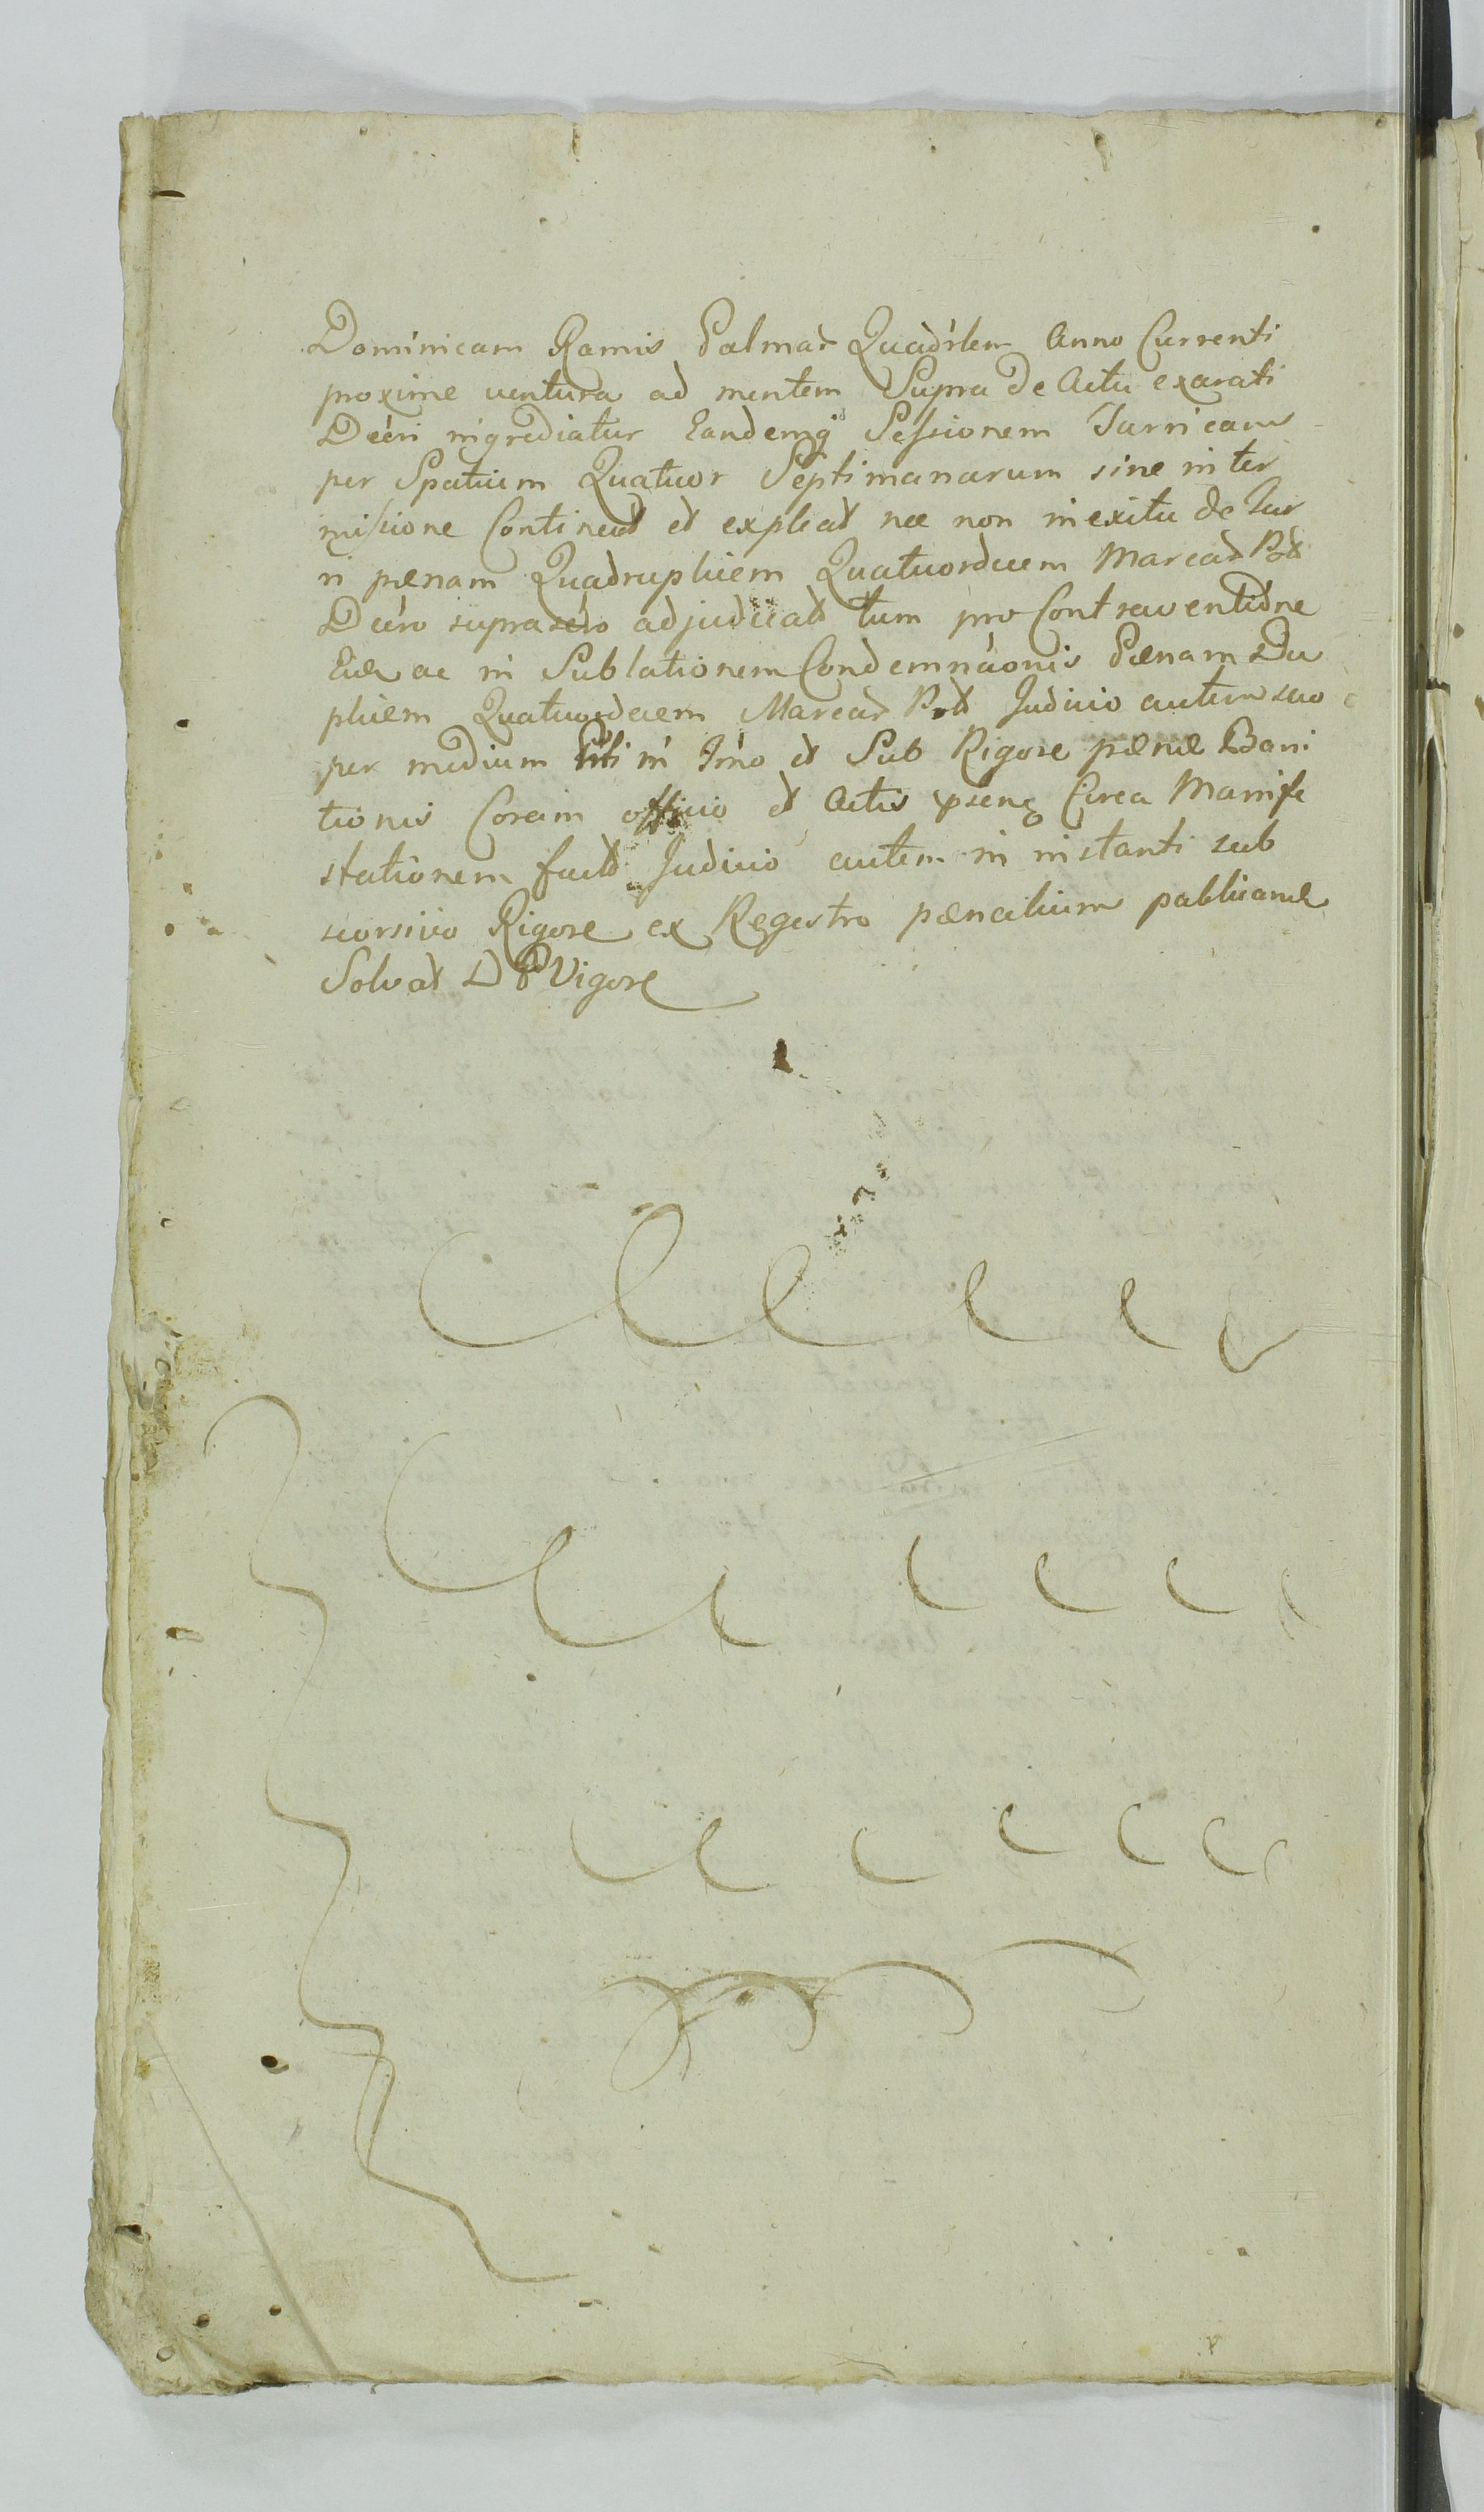 Dominicam Ramis Palmar Quadrlem Anno Currenti
proxime ventura ad mentem Supra de Actu exarati
Decri ingrediatur Eandemq Sessionem Turricam
per Spatium Quatuor Septimanarum sine inter
missione Contineat et expleat nec non in exitu de Tur
ri pænam Quadruplicem Quatuordecem Marcar Pol
Decro supra sclo adjudicat tum pro Contraventione
Ejus ac in Sublationem Condemnaonis Pænam Du
plicem Quatuordecem Marcar Pol Judicio autem suo
per medium Siti in Imo et Sub Rigore pænæ Bani
tionis Coram officio et Actis pseng Circa Manife
stationem fact Judicio autem in instanti sub
scorsivo Rigore ex Regestro pænalium publicandæ
Solvat D P Vigore